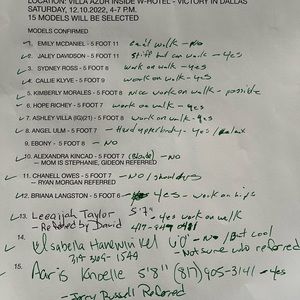 LOCATION: VILLA AZUR INSIDE W-HOTEL - VICTORY IN DALLAS
SATURDAY, 12.10.2022, 4-7 P.M.
15 MODELS WILL BE SELECTED
MODELS CONFIRMED
1. EMILY MCDANIEL - 5 FOOT 11 can't walk - NO
2. JALEY DAVIDSON - 5 FOOT 11 Stiff but can walk - yes
3. SYDNEY ROSS - 5 FOOT 8 work on walk - yes
4. CALLIE KLYVE - 5 FOOT 9 work on walk - yes
5. KIMBERLY MORALES - 5 FOOT 8 nice work on walk - possible
6. HOPE RICHEY - 5 FOOT 7 work on walk - yes
7. ASHLEY VILLA (IG)(21) - 5 FOOT 8 - yes
8. ANGEL ULM - 5 FOOT 7 - Hard upperbody - yes / Relax
9. EBONY - 5 FOOT 8 - NO
10. ALEXANDRA KINCAD - 5 FOOT 7 (Blond) - NO
- MOM IS STEPHANIE, GIDEON REFERRED
11. CHANELL OWES - 5 FOOT 7 - NO / shoulders
- RYAN MORGAN REFERRED
12. BRIANA LANGSTON - 5 FOOT 6 - yes - work on hips
13. Leeajjah Taylor 5'7" - yes work on walk
- Referred by David
14. Isabella 6'0" - NO / But cool
314 309-1544 - Not sure who referred
15. Aaris Knoelle 5'8" (817) 905-3141 - yes
- Jerry Russell Referred